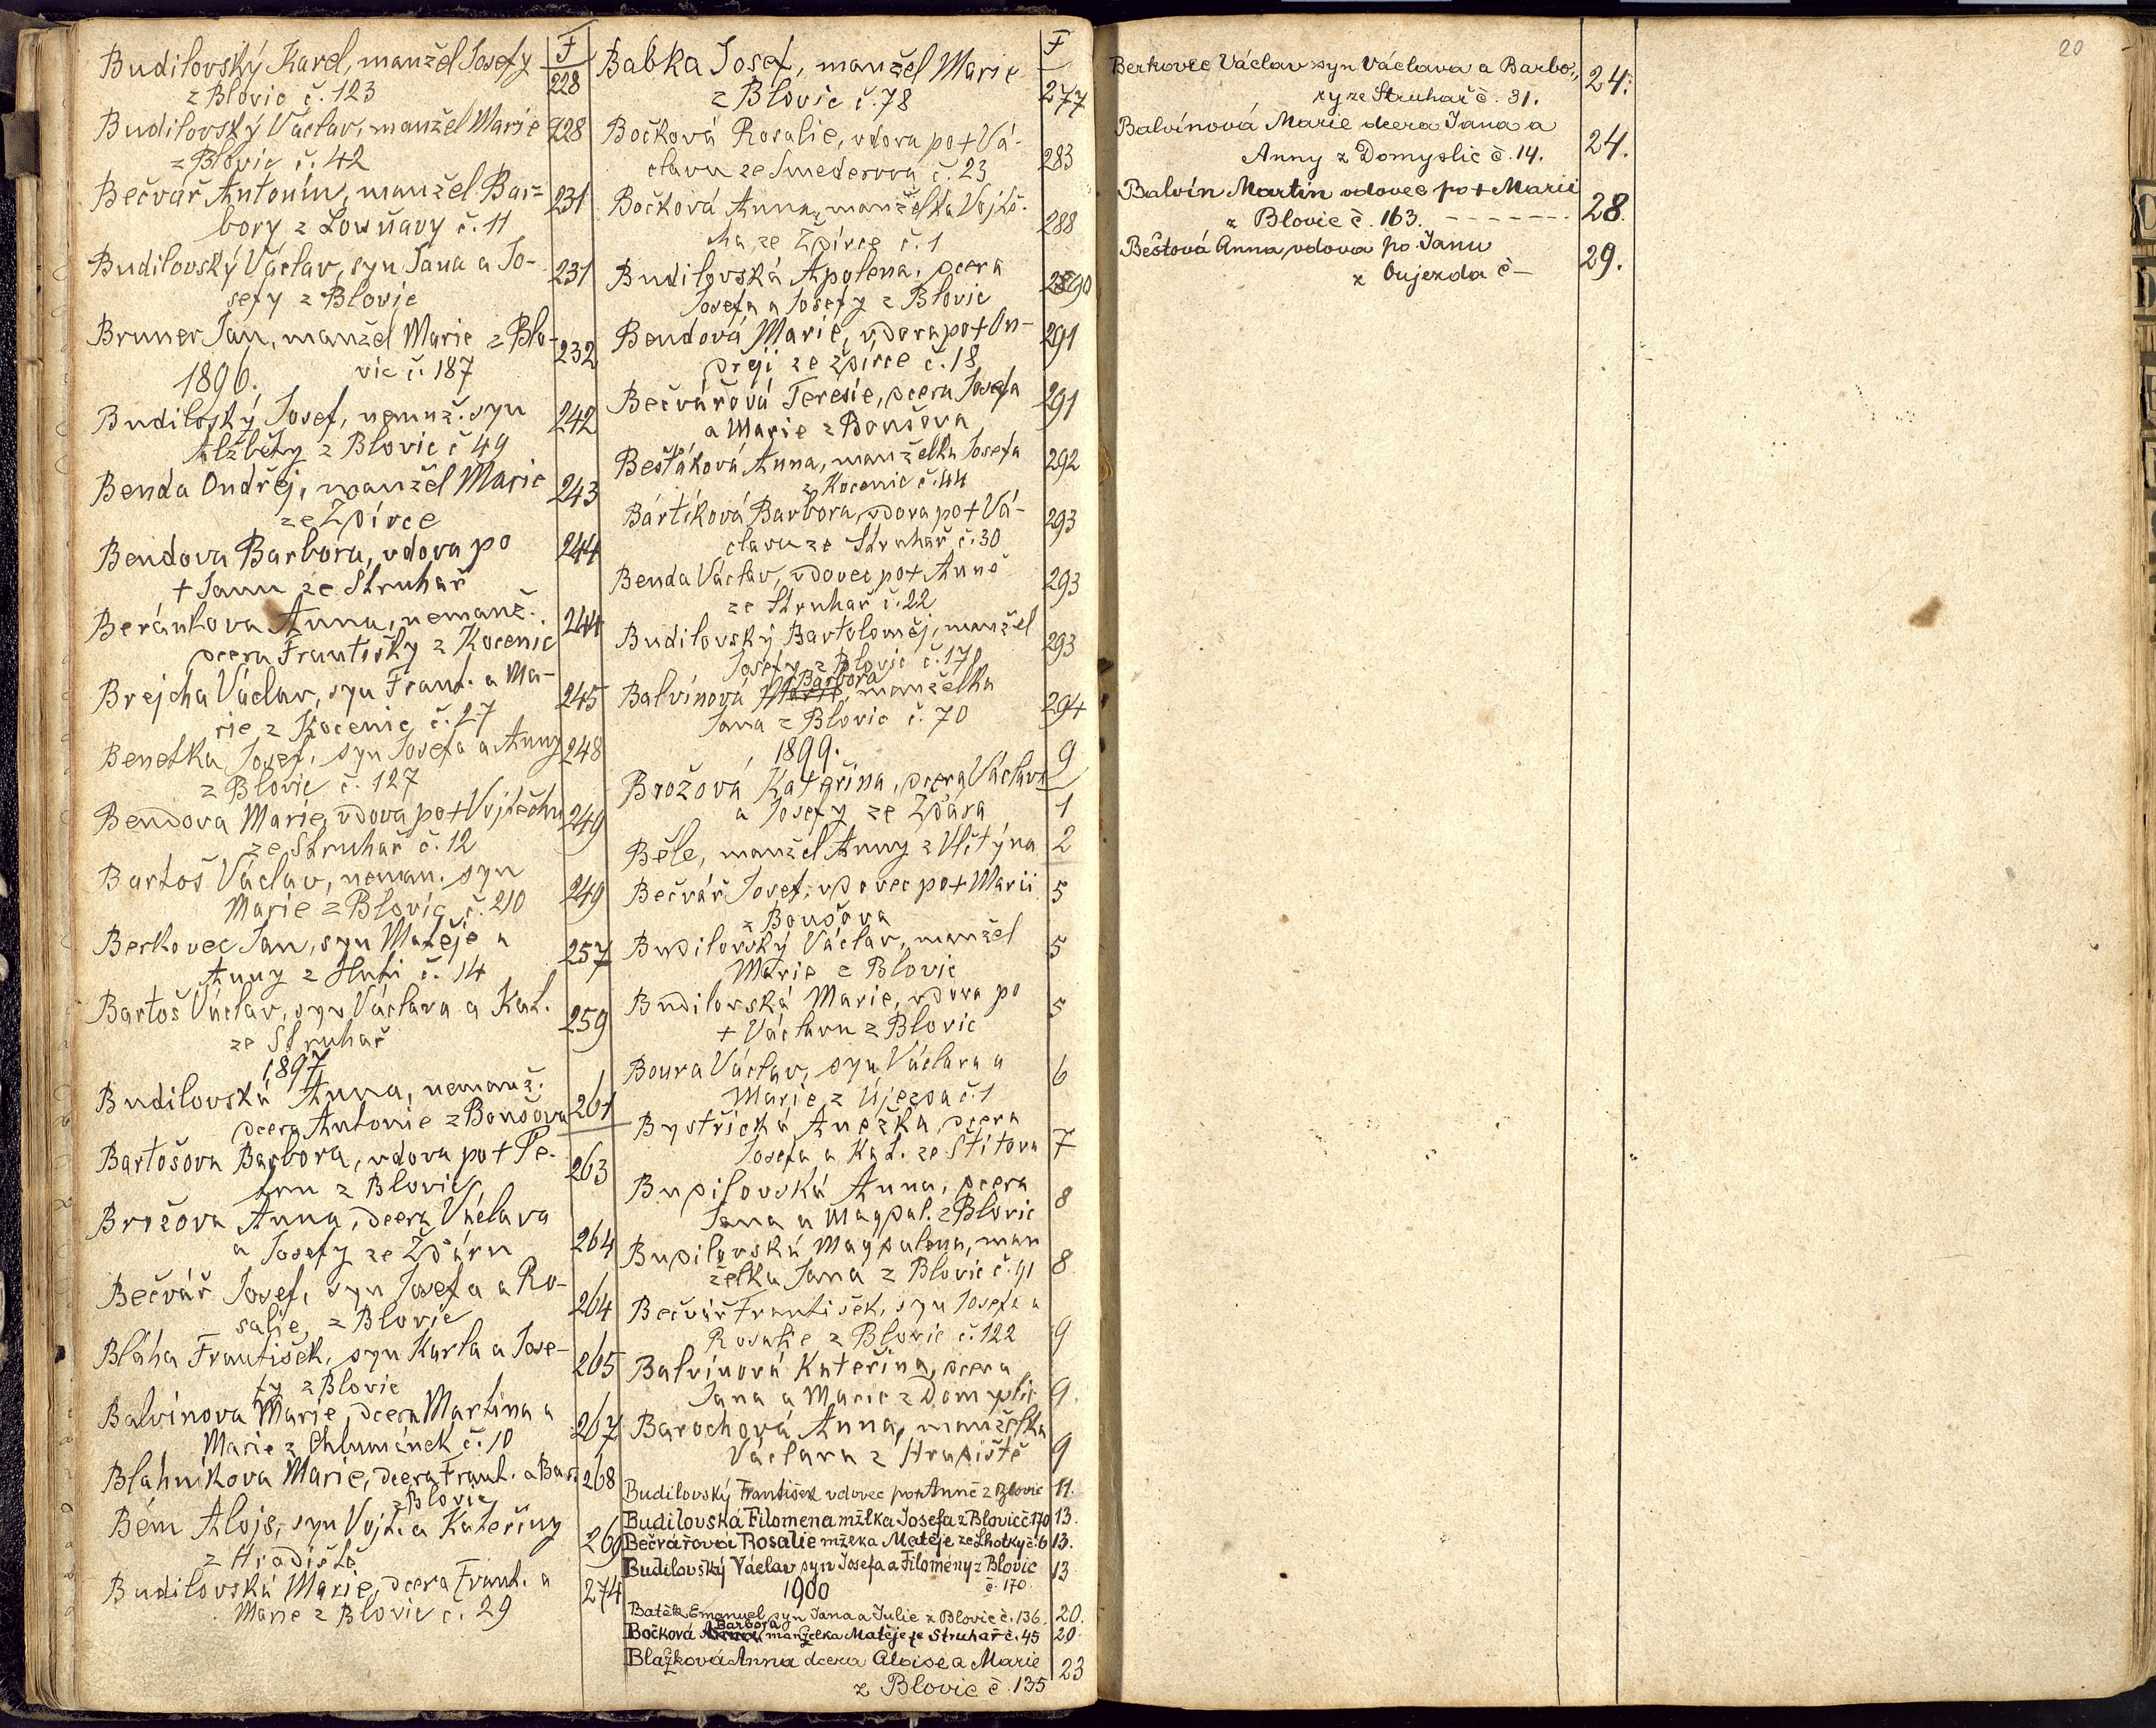 Budilovský Karel, manžel Josefy
F
z Blovic č. 123
228
Budilovský Václav, manžel Marie
228
z Blovic č. 42
Bečvář Antonín, manžel Bar=
231
bory z Louňavy č. 11
Budilovský Václav, syn Jana a Jo-
231
sefy z Blovic
Bruner Jan, manžel Marie z Blo-
232
vic č. 187
1896.
Budilovský Josef, nemož. syn
242
Alžběty z Blovic č 49
Benda Ondřej, manžel Marie
243
ze Zdírce
Bendova Barbora, vdova po
244
+ Janu ze Struhař
Beránkova Anna, nemanž.
244
dcera Františky z Kocenic
Brejcha Václav, syn Frant. a Ma-
245
rie z Kocenic č. 27
Benetka Josef, syn Josefa a Anny
248
z Blovic č. 127
Bendova Marie, vdova po + Vojtěchu
249
ze Struhař č. 12
Bartoš Václav, neman. syn
249
Marie z Blovic č. 210
Berkovec Jan, syn Matěje a
257
Anny z Huti č. 14
Bartoš Václav, syn Václava a Kat.
259
ze Struhař
1897
Budilovská Anna, nemanž.
261
dcera Antonie z Bousova
Bartošova Barbora, vdova po + Pe-
263
tru z Blovic
Brožova Anna, dcera Václava
264
a Josefy ze Žďáru
Bečvář Josef, syn Josefa a Ro-
264
salie, z Blovic
Bláha František, syn Karla a Jose-
265
fy z Blovic
Balvínova Marie, dcera Martina a
267
Marie z Chlumánek č. 10
Blahníkova Marie, dcera Frant. a Bar.
268
z Blovic
Bém Alojs, syn Vojt. a Kateřiny
269
z Hradiště
Budilovská Marie, dcera Frant. a
274
Marie z Blovic č. 29
Babka Josef, manžel Marie
F
z Blovic č. 78
277
Bočková Rosalie, vdova po + Vá-
283
clavu ze Smederova č. 23
Bočková Anna, manželka Vojtě-
288
cha ze Zdírce č. 1
Budilovská Apolena, dcera
290
Josefa a Josefy z Blovic
Bendová Marie, vdova po + On-
291
dřeji ze Zdírce č. 18
Bečvářová Teresie, dcera Josefa
291
a Marie z Bousova
Bešťáková Anna, manželka Josefa
292
z Kocenic č. 44
Bártíková Barbora, vdova po + Vá-
293
clavu ze Struhař č. 30
Benda Václav, vdovec po + Anně
293
ze Struhař č. 22
Budilovský Bartoloměj, manžel
293
Josefy z Blovic č. 170
Barbora
Balvínová Marie, manželka
294
Jana z Blovic č. 70
1899.
9
Brožová Kateřina, dcera Václava
a Josefy ze Žďára
1
Běle, manžel Anny z Vlčtýna
2
Bečvář Josef, vdovec po + Marii
5
z Bousova
Budilovský Václav, manžel
5
Marie z Blovic
Budilovská Marie, vdova po
5
+ Václavu z Blovic
Boura Václav, syn Václava a
6
Marie z Újezda č. 1
Bystřická Anežka, dcera
7
Josefa a Kat. ze Štítova
Budilovská Anna, dcera
8
Jana a Magdal. z Blovic
Budilovská Magdalena, man
8
želka Jana z Blovic č. 91
Bečvář František, syn Josefa a
9
Rosalie z Blovic č. 122
Balvínová Kateřina, dcera
Jana a Marie z Domyslic
9.
Barochová Anna, manželka
Václava z Hradiště
9
Budilovský František vdovec po + Anně z Blovic
11.
Budilovská Filomena mžlka Josefa z Blovic č 170
13.
Bečvářová Rosalie mžlka Matěje ze Lhotky č. 6
13.
Budilovský Václav syn Josefa a Filomény z Blovic
13
č. 170.
1900
Batěk Emanuel syn Jana a Julie z Blovic č. 136.
20.
Barbora
Bočková Anna, manželka Matěje ze Struhař č. 45
20.
Blažková Anna dcera Aloise a Marie
23
z Blovic č. 135
20
Berkovec Václav syn Václava a Barbo„
24.
ry ze Struhař č. 31.
Balvínová Marie dcera Jana a
24.
Anny z Domyslic č. 14.
Balvín Martin vdovec po + Marii
28.
z Blovic č. 163. - - - - - - -
Beštová Anna vdova po Janu
29.
z Oujezda č –